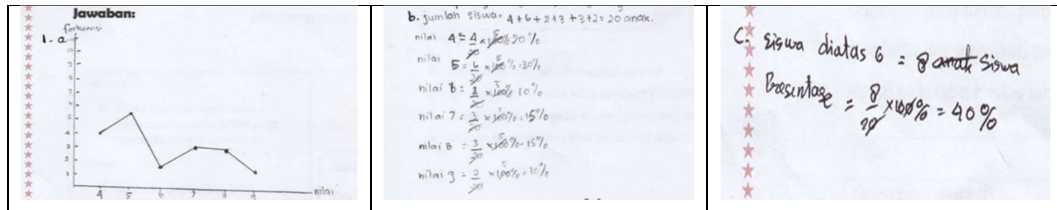 Jawaban:
frekuensi
1. a
4 5 6 7 8 9 nilai
b. jumlah siswa = 4+6+2+3+3+2 = 20 anak.
nilai 4 = 4/20 × 100% 20%
nilai 5 = 6/20 × 100% = 30%
nilai 8 = 2/20 × 100% 10%
nilai 7 = 3/20 × 100% = 15%
nilai 8 = 3/20 × 100% = 15%
nilai 9 = 2/20 × 100% = 10%
C. siswa diatas 6 = 8 anak siswa
Presentage = 8/20 × 100% = 40%